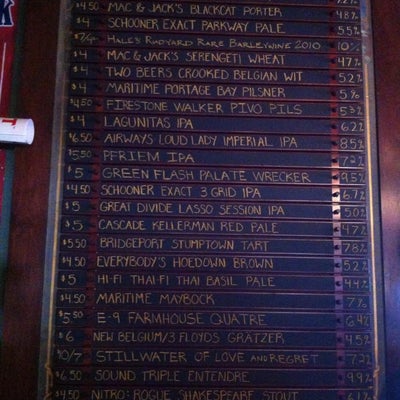 $4.50 MAC & JACK'S BLACKCAT PORTER 4.8%
$4 SCHOONER EXACT PARKWAY PALE 5.5%
$7/4 HALE'S RUDYARD RARE BARLEYWINE 2010 10%
$4 MAC & JACK'S SERENGETI WHEAT 4.7%
$4 TWO BEERS CROOKED BELGIAN WIT 5.2%
$4 MARITIME PORTAGE BAY PILSNER 5%
$4.50 FIRESTONE WALKER PIVO PILS 5.3%
$4 LAGUNITAS IPA 6.2%
$6.50 AIRWAYS LOUD LADY IMPERIAL IPA 8.5%
$5 PFRIEM IPA 7.2%
$5 GREEN FLASH PALATE WRECKER 9.5%
$4.50 SCHOONER EXACT 3 GRID IPA 6.7%
$5 GREAT DIVIDE LASSO SESSION IPA 5.0%
$5 CASCADE KELLERMAN RED PALE 4.7%
$5.50 BRIDGEPORT STUMPTOWN TART 7.8%
$4.50 EVERYBODY'S HOEDOWN BROWN 5.2%
$5 HI-FI THAI-FI THAI BASIL PALE 4.4%
$4.50 MARITIME MAYBOCK 7%
$5.50 E-9 FARMHOUSE QUATRE 6.4%
$6 NEW BELGIUM/3 FLOYDS GRÄTZER 4.5%
$10/7 STILLWATER OF LOVE AND REGRET 7.2%
$6.50 SOUND TRIPLE ENTENDRE 9.9%
$4.50 NITRO: ROGUE SHAKESPEARE STOUT 6.1%